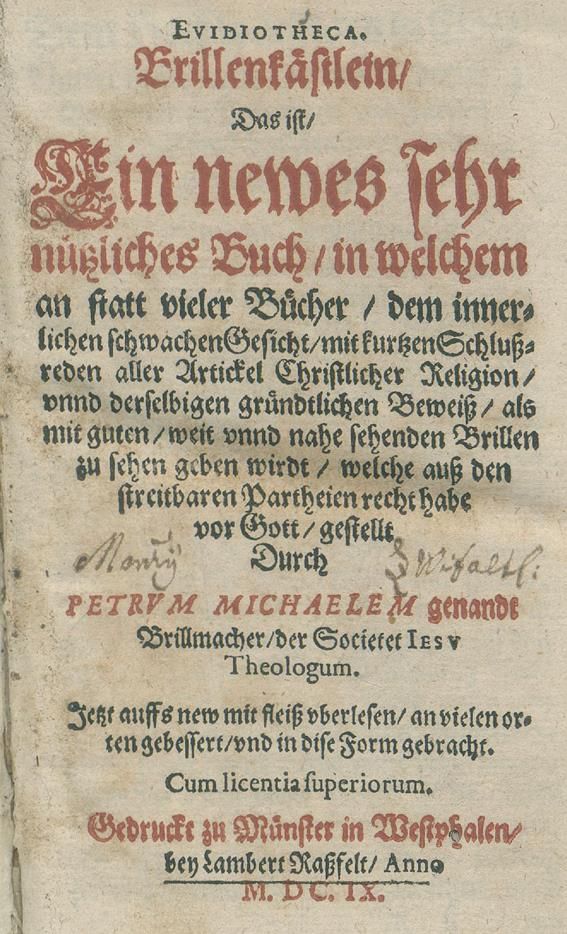 EVIDIOTHECA.
Brillenkästlein/
Das ist/
Ein newes sehr
nützliches Buch / in welchem
an statt vieler Bücher / dem inner-
lichen schwachen Gesicht / mit kurtzen Schluß-
reden aller Artickel Christlicher Religion /
vnnd derselbigen gründtlichen Beweiß / als
mit guten / weit vnnd nahe sehenden Brillen
zu sehen geben wirdt / welche auß den
streitbaren Partheien recht habe
vor Gott / gestellt
Durch
PETRVM MICHAELEM genandt
Brillmacher / der Societet IESV
Theologum.
Jetzt auffs new mit fleiß vberlesen / an vielen or-
ten gebessert / vnd in dise Form gebracht.
Cum licentia superiorum.
Gedruckt zu Münster in Westphalen /
bey Lambert Raßfelt / Anno
M. DC. IX.